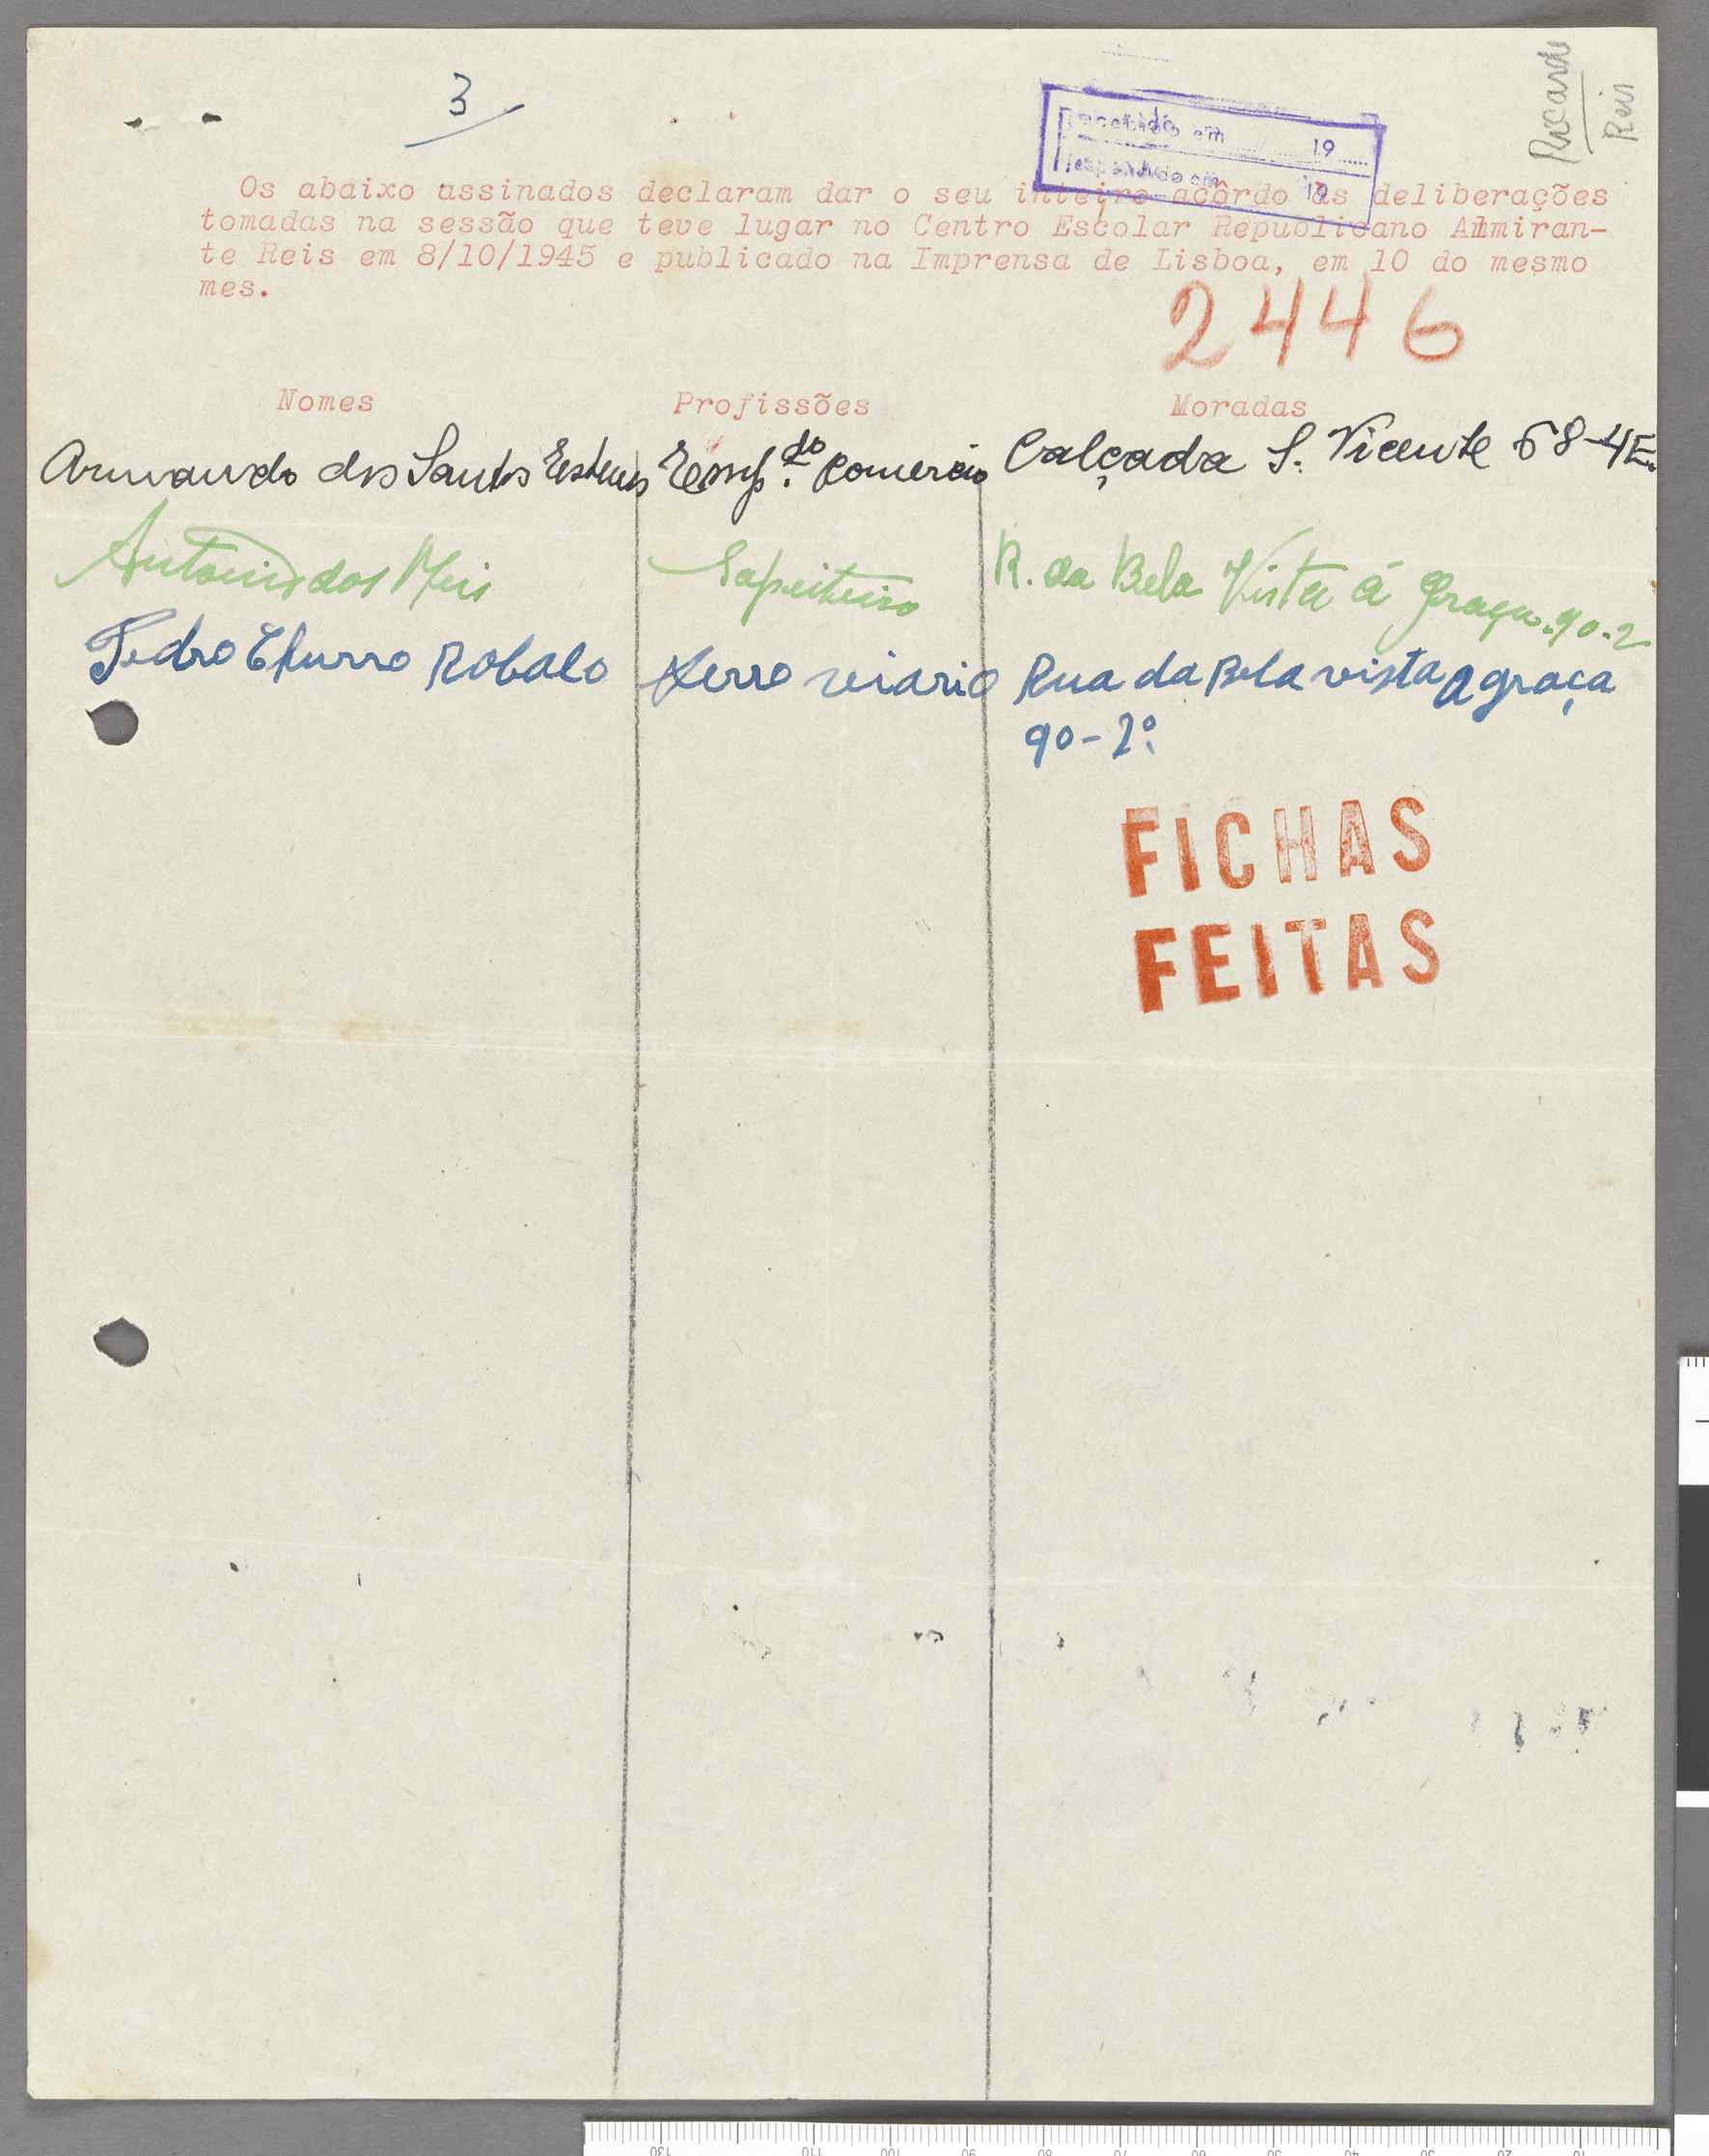 3
Ricardo
Reis
recebido em 19
respondido em 19
Os abaixo assinados declaram dar o seu inteiro acôrdo às deliberações
tomadas na sessão que teve lugar no Centro Escolar Republicano Almiran-
te Reis em 8/10/1945 e publicado na Imprensa de Lisboa, em 10 do mesmo
mes.
2446
Nomes Profissões Moradas
Armando dos Santos Esteves Emp.do Comercio Calçada S. Vicente 68-4E.
Antonio dos Reis Sapateiro R. da Bela Vista á Graça. 90-2
Pedro Churro Robalo Ferro viario Rua da Bela vista a graça
90-2º
FICHAS
FEITAS